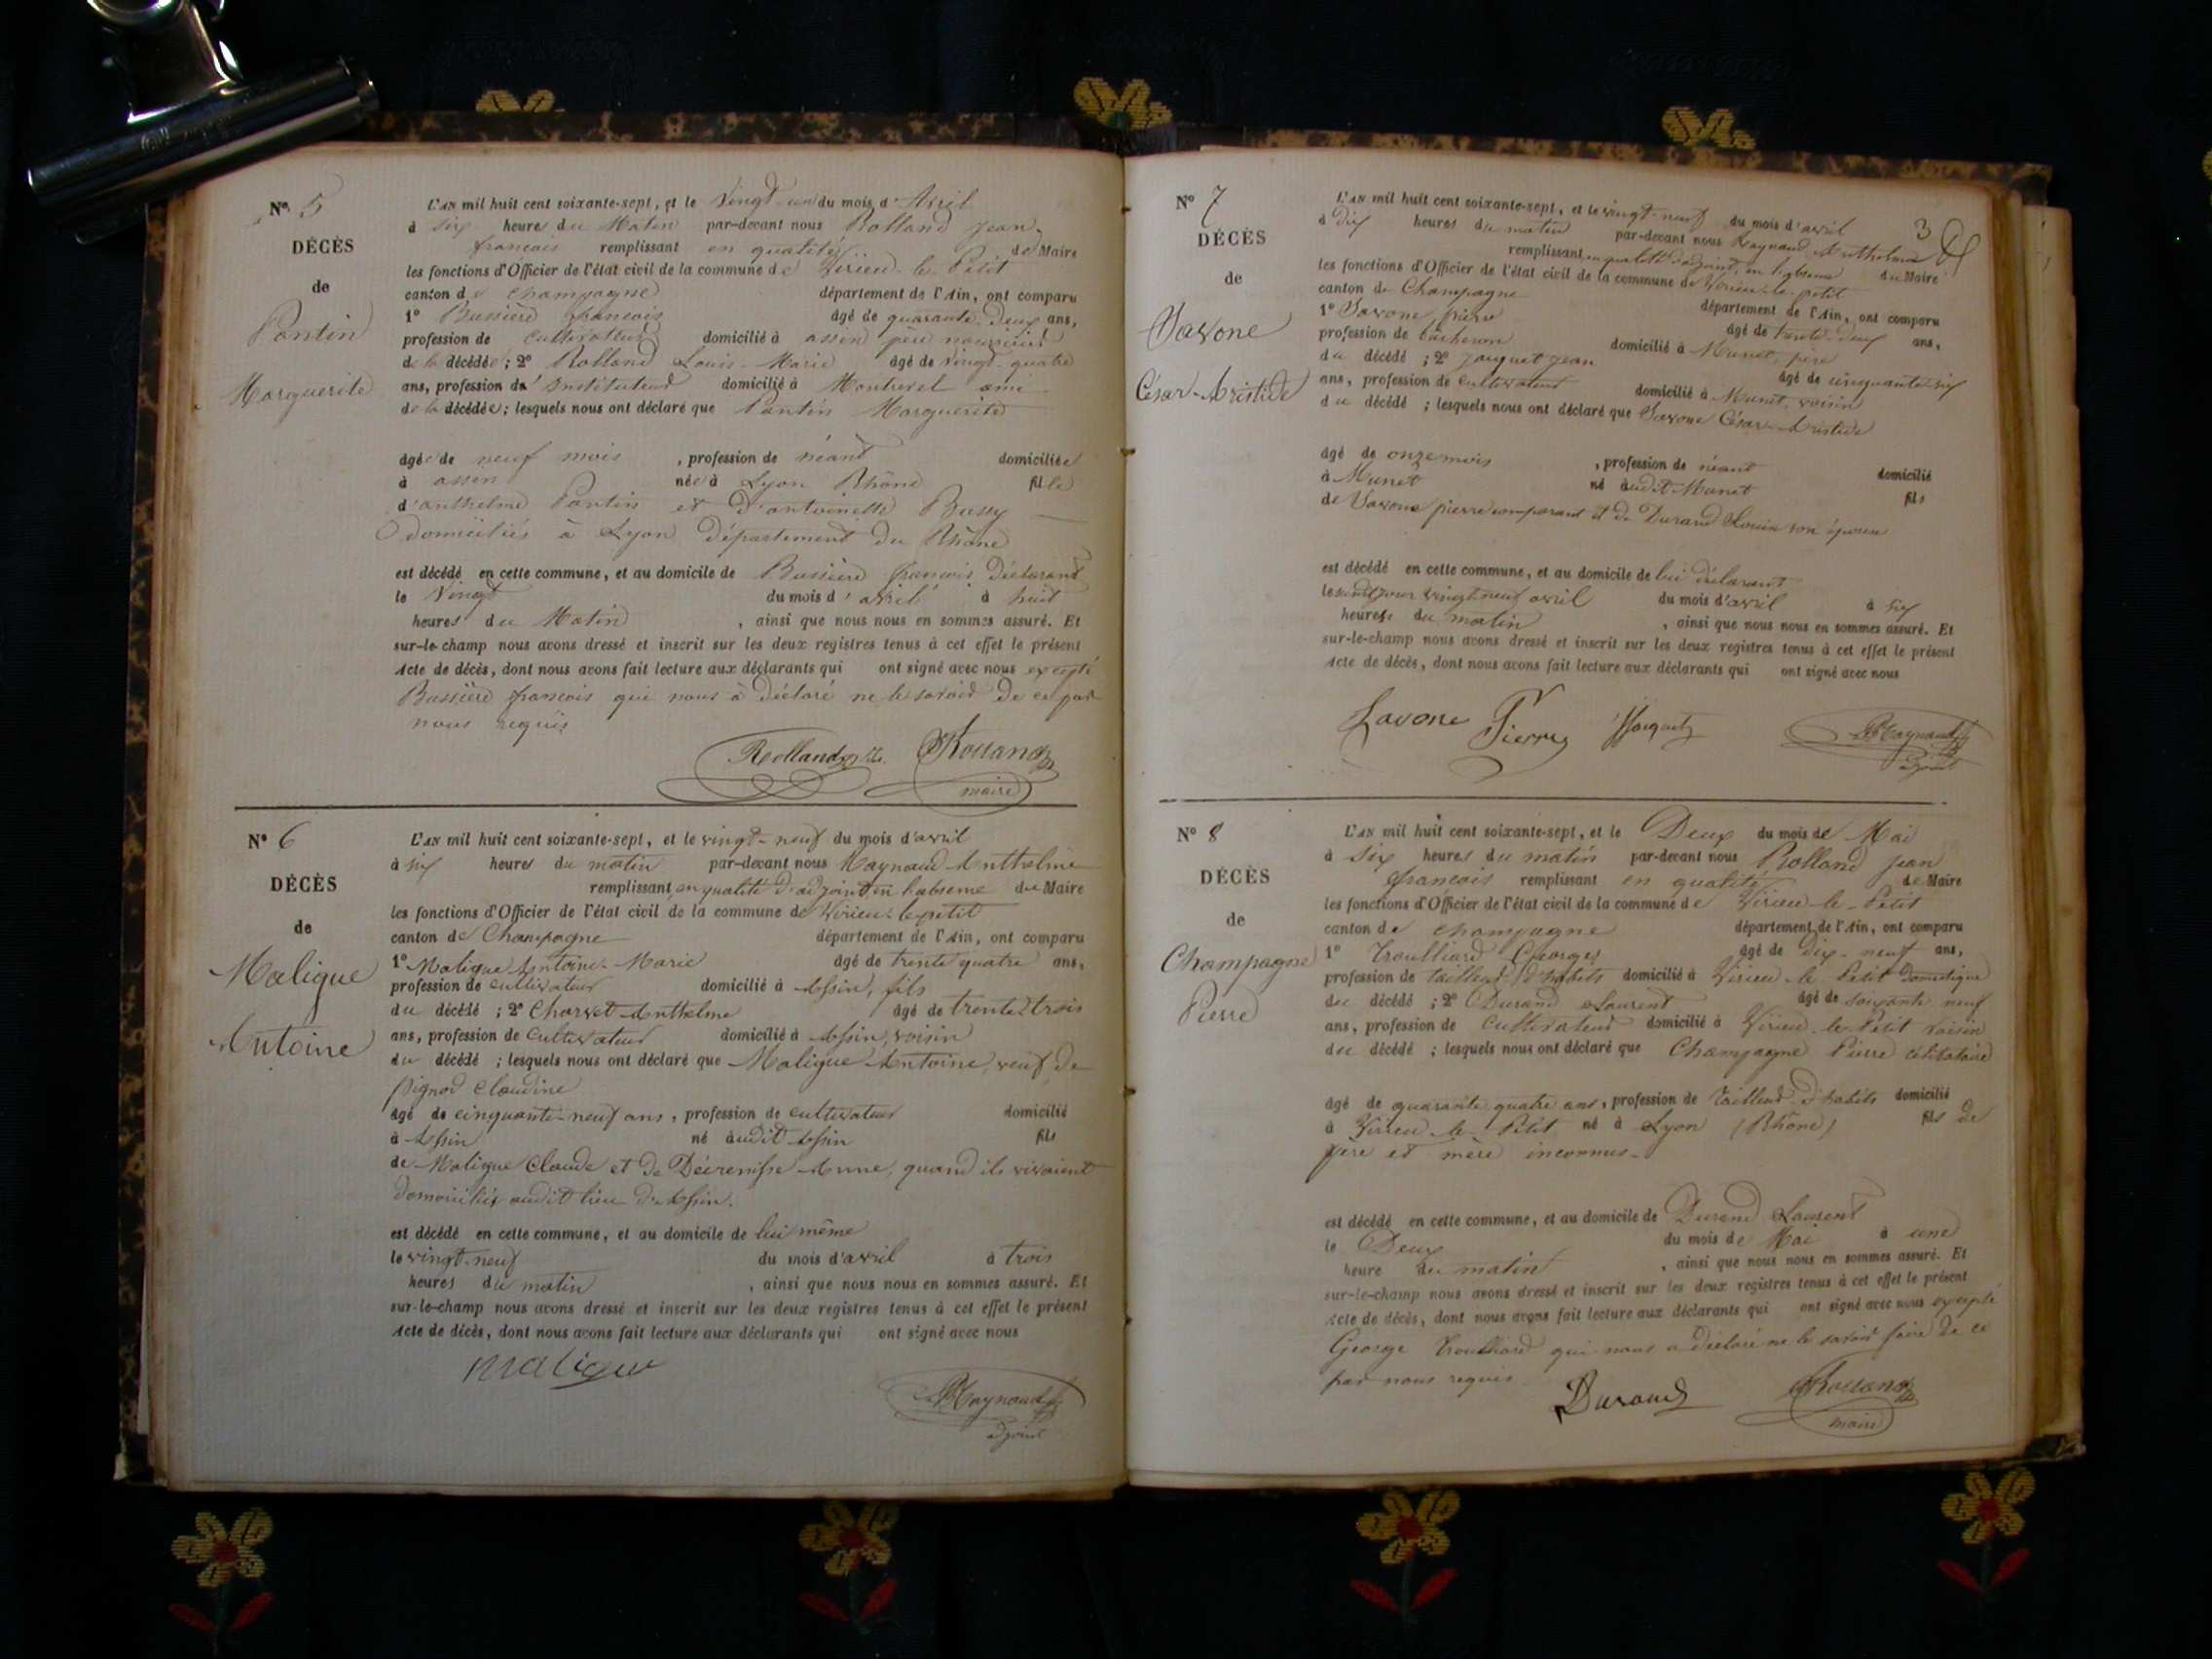 N° 5
DÉCÈS
de
Pantin
Marguerite
L'AN mil huit cent soixante-sept, et le Vingt-un du mois d'Avril
à six heures du Matin par-devant nous Rolland Jean,
francois remplissant en qualité de Maire
les fonctions d'Officier de l'état civil de la commune de Virieu-le-Petit
canton de Champagne département de l'Ain, ont comparu
1° Bussière francois âgé de quarante-deux ans,
profession de Cultivateur domicilié à assin père nourricier
de la décédée; 2° Rolland Louis-Marie âgé de vingt-quatre
ans, profession d'Instituteur domicilié à ami
de la décédée; lesquels nous ont déclaré que Pantin Marguerite
âgée de neuf mois, profession de néant domiciliée
à assin née à Lyon Rhône fille
d'anthelme Pantin et d'antoinette Bussy
domiciliés à Lyon département du Rhône
est décédé en cette commune, et au domicile de Bussière francois déclarant
le Vingt du mois d'avril à huit
heures du Matin, ainsi que nous nous en sommes assuré. Et
sur-le-champ nous avons dressé et inscrit sur les deux registres tenus à cet effet le présent
Acte de décès, dont nous avons fait lecture aux déclarants qui ont signé avec nous excepté
Bussière francois qui nous à déclaré ne le savoir de ce par
nous requis
Rolland Rolland
maire
N° 6
DÉCÈS
de
Maligue
Antoine
L'AN mil huit cent soixante-sept, et le vingt-neuf du mois d'avril
à six heures du matin par-devant nous Raynaud Anthelme
remplissant en qualité d'adjoint en l'absence du Maire
les fonctions d'Officier de l'état civil de la commune de Virieu-le-petit
canton de Champagne département de l'Ain, ont comparu
1° Maligue Antoine-Marie âgé de trente quatre ans,
profession de cultivateur domicilié à Assin, fils
du décédé; 2° Charvet Anthelme âgé de trente-trois
ans, profession de Cultivateur domicilié à Assin, voisin
du décédé; lesquels nous ont déclaré que Maligue Antoine, veuf de
pignod Claudine
âgé de cinquante-neuf ans, profession de cultivateur domicilié
à Assin né audit Assin fils
de Maligue Claude et de Décrenisse Anne, quand ils vivaient
domiciliés audit lieu d'Assin.
est décédé en cette commune, et au domicile de lui même
le vingt-neuf du mois d'avril à trois
heures du matin, ainsi que nous nous en sommes assuré. Et
sur-le-champ nous avons dressé et inscrit sur les deux registres tenus à cet effet le présent
Acte de décès, dont nous avons fait lecture aux déclarants qui ont signé avec nous
Maligue
Raynaud
adjoint
3
N° 7
DÉCÈS
de
Savone
César-Aristide
L'AN mil huit cent soixante-sept, et le vingt-neuf du mois d'avril
à dix heures du matin par-devant nous Raynaud Anthelme
remplissant en qualité d'adjoint en l'absence du Maire
les fonctions d'Officier de l'état civil de la commune de Virieu-le-petit
canton de Champagne département de l'Ain, ont comparu
1° Savone pierre âgé de trente-deux ans,
profession de bûcheron domicilié à Munet, père
du décédé; 2° Jacquet Jean âgé de cinquante-six
ans, profession de Cultivateur domicilié à Munet, voisin
du décédé; lesquels nous ont déclaré que Savone César-Aristide
âgé de onze mois, profession de néant domicilié
à Munet né audit Munet fils
de Savone pierre comparant et de Durand Louise son épouse
est décédé en cette commune, et au domicile de lui déclarant
le susdit jour vingt-neuf avril du mois d'avril à six
heures du matin, ainsi que nous nous en sommes assuré. Et
sur-le-champ nous avons dressé et inscrit sur les deux registres tenus à cet effet le présent
Acte de décès, dont nous avons fait lecture aux déclarants qui ont signé avec nous
Savone Pierre Jacquet Raynaud
adjoint
N° 8
DÉCÈS
de
Champagne
Pierre
L'AN mil huit cent soixante-sept, et le Deux du mois de Mai
à six heures du matin par-devant nous Rolland Jean
francois remplissant en qualité de Maire
les fonctions d'Officier de l'état civil de la commune de Virieu-le-Petit
canton de Champagne département de l'Ain, ont comparu
1° Trouilliard Georges âgé de dix-neuf ans,
profession de tailleur d'habits domicilié à Virieu-le-Petit domestique
du décédé; 2° Durand Laurent âgé de soixante neuf
ans, profession de cultivateur domicilié à Virieu-le-Petit voisin
du décédé; lesquels nous ont déclaré que Champagne Pierre célibataire
âgé de quarante quatre ans, profession de Tailleur d'habits domicilié
à Virieu-le-Petit né à Lyon (Rhône) fils de
père et mère inconnus-
est décédé en cette commune, et au domicile de Durand Laurent
le Deux du mois de Mai à une
heure du matin, ainsi que nous nous en sommes assuré. Et
sur-le-champ nous avons dressé et inscrit sur les deux registres tenus à cet effet le présent
Acte de décès, dont nous avons fait lecture aux déclarants qui ont signé avec nous excepté
George Trouilliard qui nous a déclaré ne le savoir faire de ce
par nous requis
Durand Rolland
maire